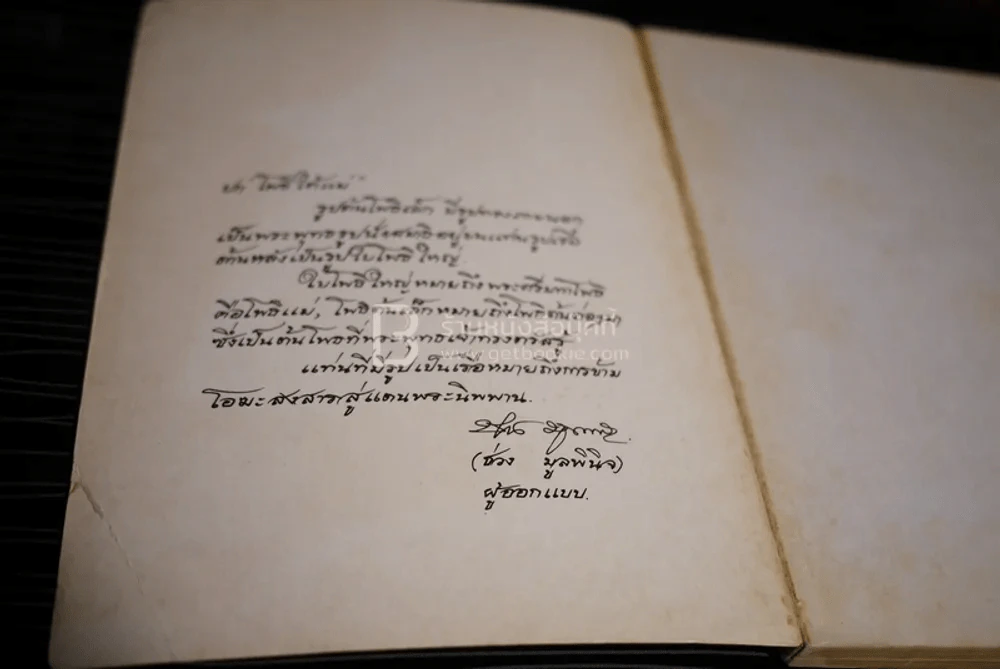 ปก "โพธิ์ใต้แม่"
รูปต้นโพธิ์เล็ก มีรูปทรงภายนอก
เป็นพระพุทธรูปนั่งสมาธิอยู่บนแท่นรูปเรือ
ด้านหลังเป็นรูปใบโพธิใหญ่.
ใบโพธิใหญ่หมายถึงพระศรีมหาโพธิ
คือโพธิแม่, โพธิต้นเล็กหมายถึงโพธิต้นต่อมา
ซึ่งเป็นต้นโพธิที่พระพุทธเจ้าทรงตรัสรู้
แท่นที่มีรูปเป็นเรือหมายถึงการข้าม
โอฆะสงสารสู่แดนพระนิพพาน.
(ช่วง มูลพินิจ)
ผู้ออกแบบ.
ร้านหนังสือบุคกี้
www.getbookie.com